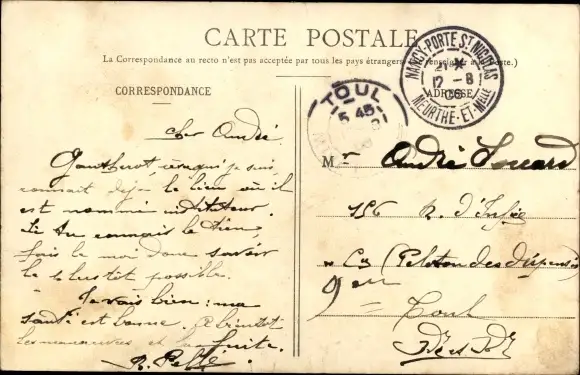 CARTE POSTALE
La Correspondance au recto n'est pas acceptée par tous les pays étrangers (Se renseigner à la Poste.)
CORRESPONDANCE
ADRESSE
NANCY-PORTE ST NICOLAS
21 *
12 - 8
08
MEURTHE-ET-MELLE
TOUL
5 45
Cher André.
Gautherot, ainsi que je suis,
connait déjà le lieu où il
est nommé instituteur.
Si tu connais le tien,
fais le moi donc savoir
le plus tôt possible.
Je vais bien : ma
santé est bonne. A bientôt
les manœuvres et la fuite.
R. Pellé
Mr André
156 R. d'Infie
Cie (Peloton des dispensés)
9 em
Toul